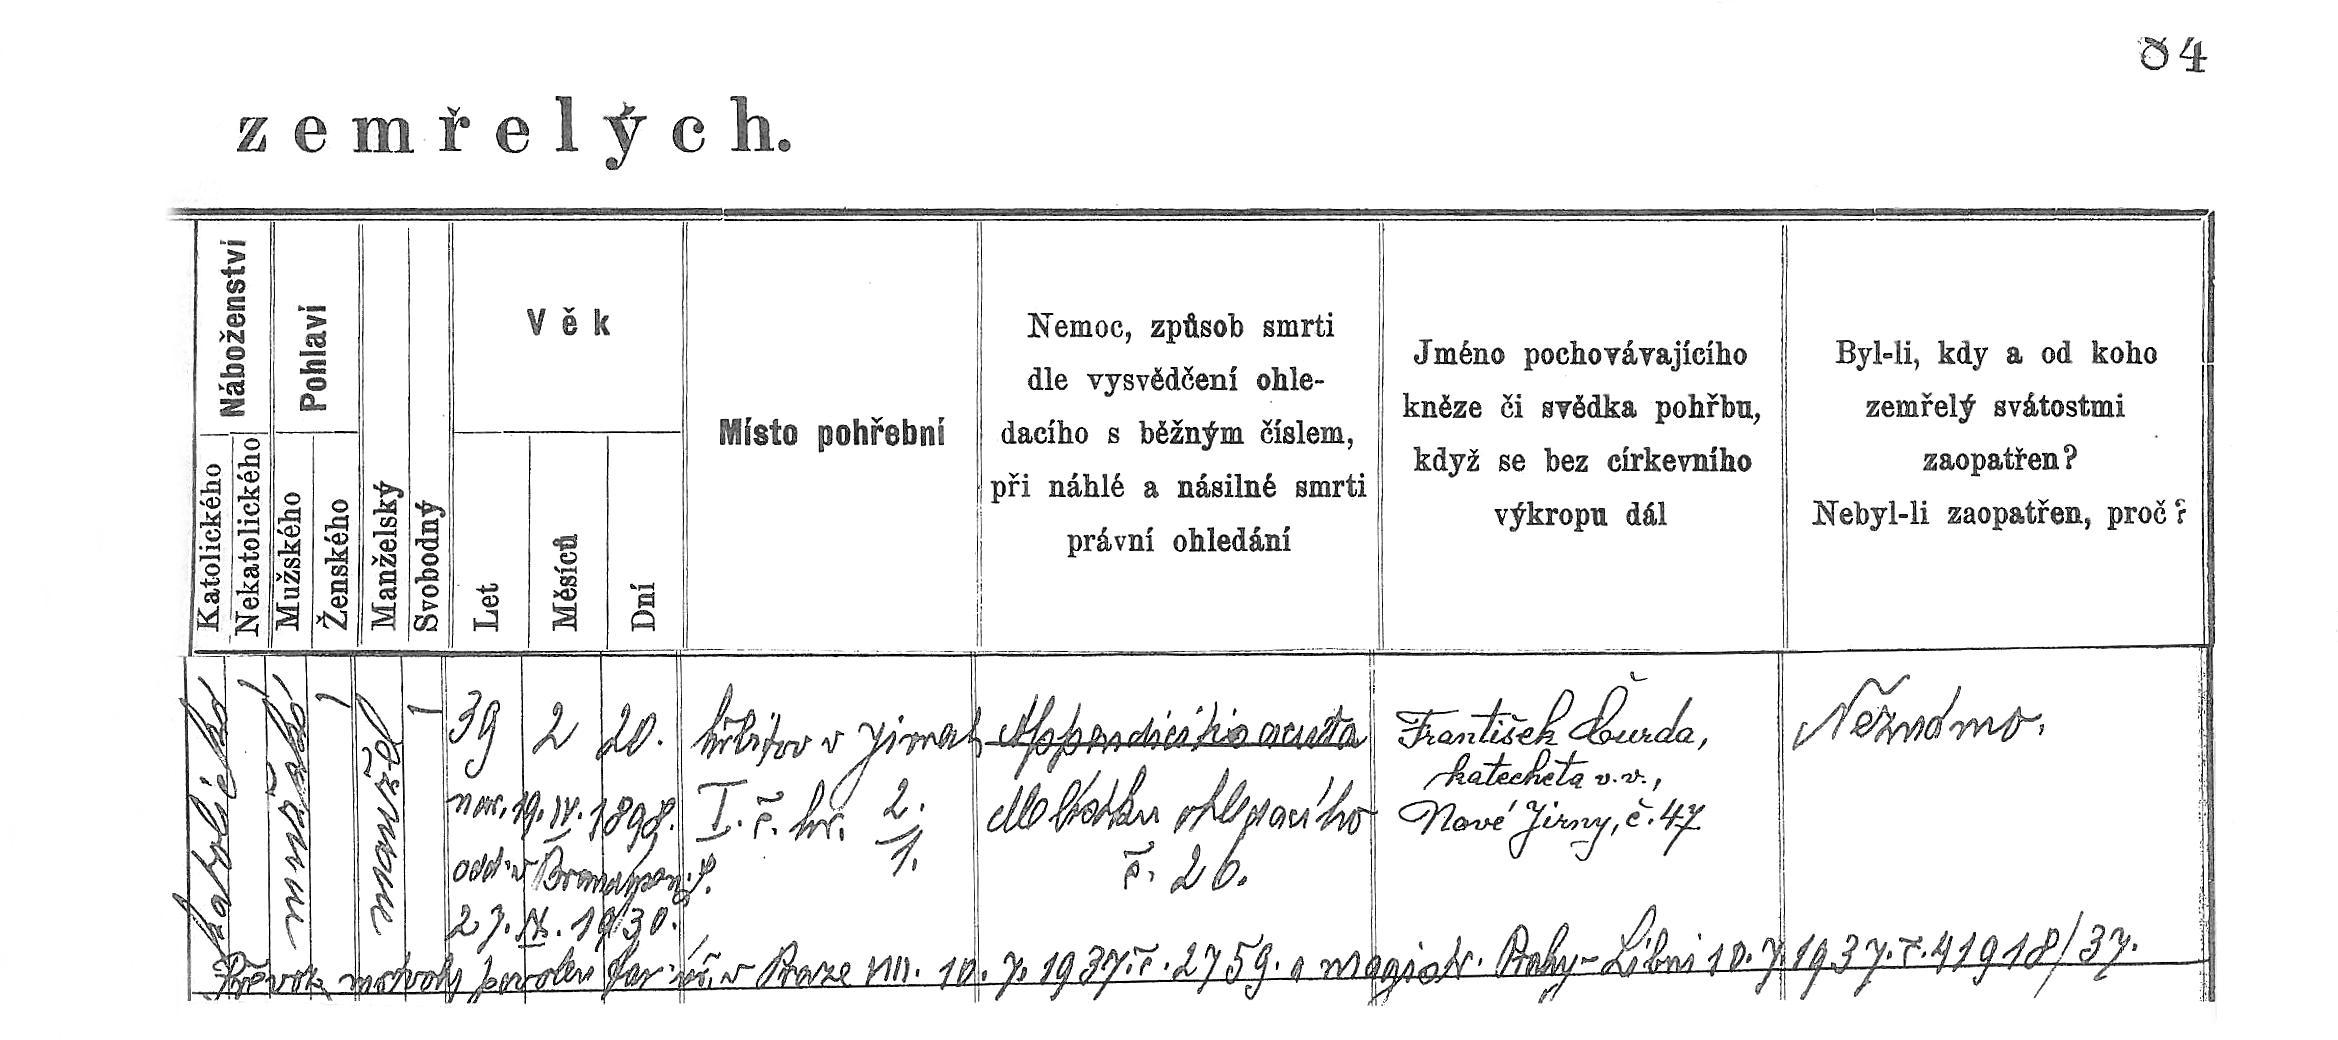 84
zemřelých.
Náboženství
Katolického
Nekatolického
Pohlaví
Mužského
Ženského
Manželský
Svobodný
Věk
Let
Měsíců
Dní
Místo pohřební
Nemoc, způsob smrti
dle vysvědčení ohle-
dacího s běžným číslem,
při náhlé a násilné smrti
právní ohledání
Jméno pochovávajícího
kněze či svědka pohřbu,
když se bez církevního
výkropu dál
Byl-li, kdy a od koho
zemřelý svátostmi
zaopatřen?
Nebyl-li zaopatřen, proč?
katolické
mužské
manžel
39 2 20.
nar. 19. IV. 1898.
odd. v
1930.
hřbitov v Jirnech
I. č. hr. 2./1.
Appendicitis acuta
ohledacího
č. 20.
František Čurda,
katecheta v. v.,
Nové Jirny, č. 47
Neznámo.
Převoz mrtvoly povolen far. úř. v Praze VIII. 10. 7. 1937. č. 2759. a magistr. Prahy-Libni 10. 7. 1937. č. 41918/37.